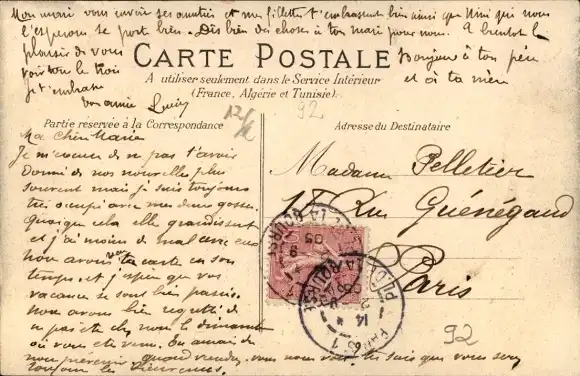 Mon mari vous envoie ses amitiés et mes fillettes t'embrassent bien ainsi que Mimi qui nous
l'espérons se porte bien. Dès bien des choses à ton mari pour nous. A bientot le
plaisir de vous
voir tous le trois
Je t'embrasse
ton amie Lucie
Bonjour à ton père
et à ta mère
CARTE POSTALE
A utiliser seulement dans le Service Intérieur
(France, Algérie et Tunisie).
92
Partie réservée à la Correspondance
Adresse du Destinataire
Ma Chère Marie
Je m'excuse de ne pas t'avoir
Donné de nos nouvelles plus
souvent mais je suis toujours
très occupé avec mes deux gosses
Quoique cela elle grandissent
et j'ai moins de mal avec eux
nous avons reçu ta carte en son
temps et j'espère que vos
vacances se sont bien passées
Nous avons bien regretté de
ne pas été chez nous le dimanche
où vous ete venu. Tu aurais du
nous prévenir quand viendrez vous nous voir tu sais que vous serez
toujours les bienvenus.
Madame Pelletier
15 Rue Guénégaud
Paris
92